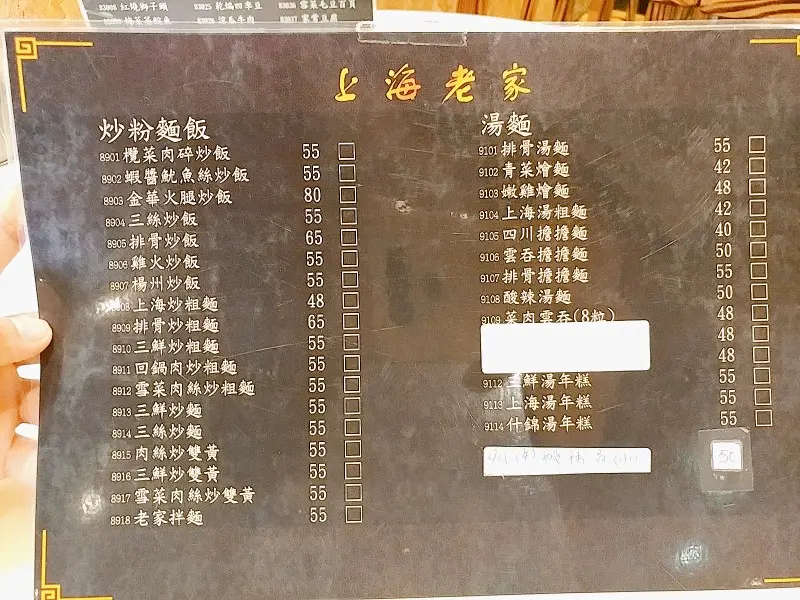 83008 紅燒獅子頭
83025 乾煸四季豆
83036 雪菜毛豆百頁
83026 涼瓜牛肉
83037 家常豆腐
上海老家
炒粉麵飯
8901 欖菜肉碎炒飯 55
8902 蝦醬魷魚絲炒飯 55
8903 金華火腿炒飯 80
8904 三絲炒飯 55
8905 排骨炒飯 65
8906 雞火炒飯 55
8907 楊州炒飯 55
8908 上海炒粗麵 48
8909 排骨炒粗麵 65
8910 三鮮炒粗麵 55
8911 回鍋肉炒粗麵 55
8912 雪菜肉絲炒粗麵 55
8913 三鮮炒麵 55
8914 三絲炒麵 55
8915 肉絲炒雙黃 55
8916 三鮮炒雙黃 55
8917 雪菜肉絲炒雙黃 55
8918 老家拌麵 55
湯麵
9101 排骨湯麵 55
9102 青菜燴麵 42
9103 嫩雞燴麵 48
9104 上海湯粗麵 42
9105 四川擔擔麵 40
9106 雲吞擔擔麵 50
9107 排骨擔擔麵 55
9108 酸辣湯麵 50
9109 菜肉雲吞(8粒) 48
48
48
9112 三鮮湯年糕 55
9113 上海湯年糕 55
9114 什錦湯年糕 55
50